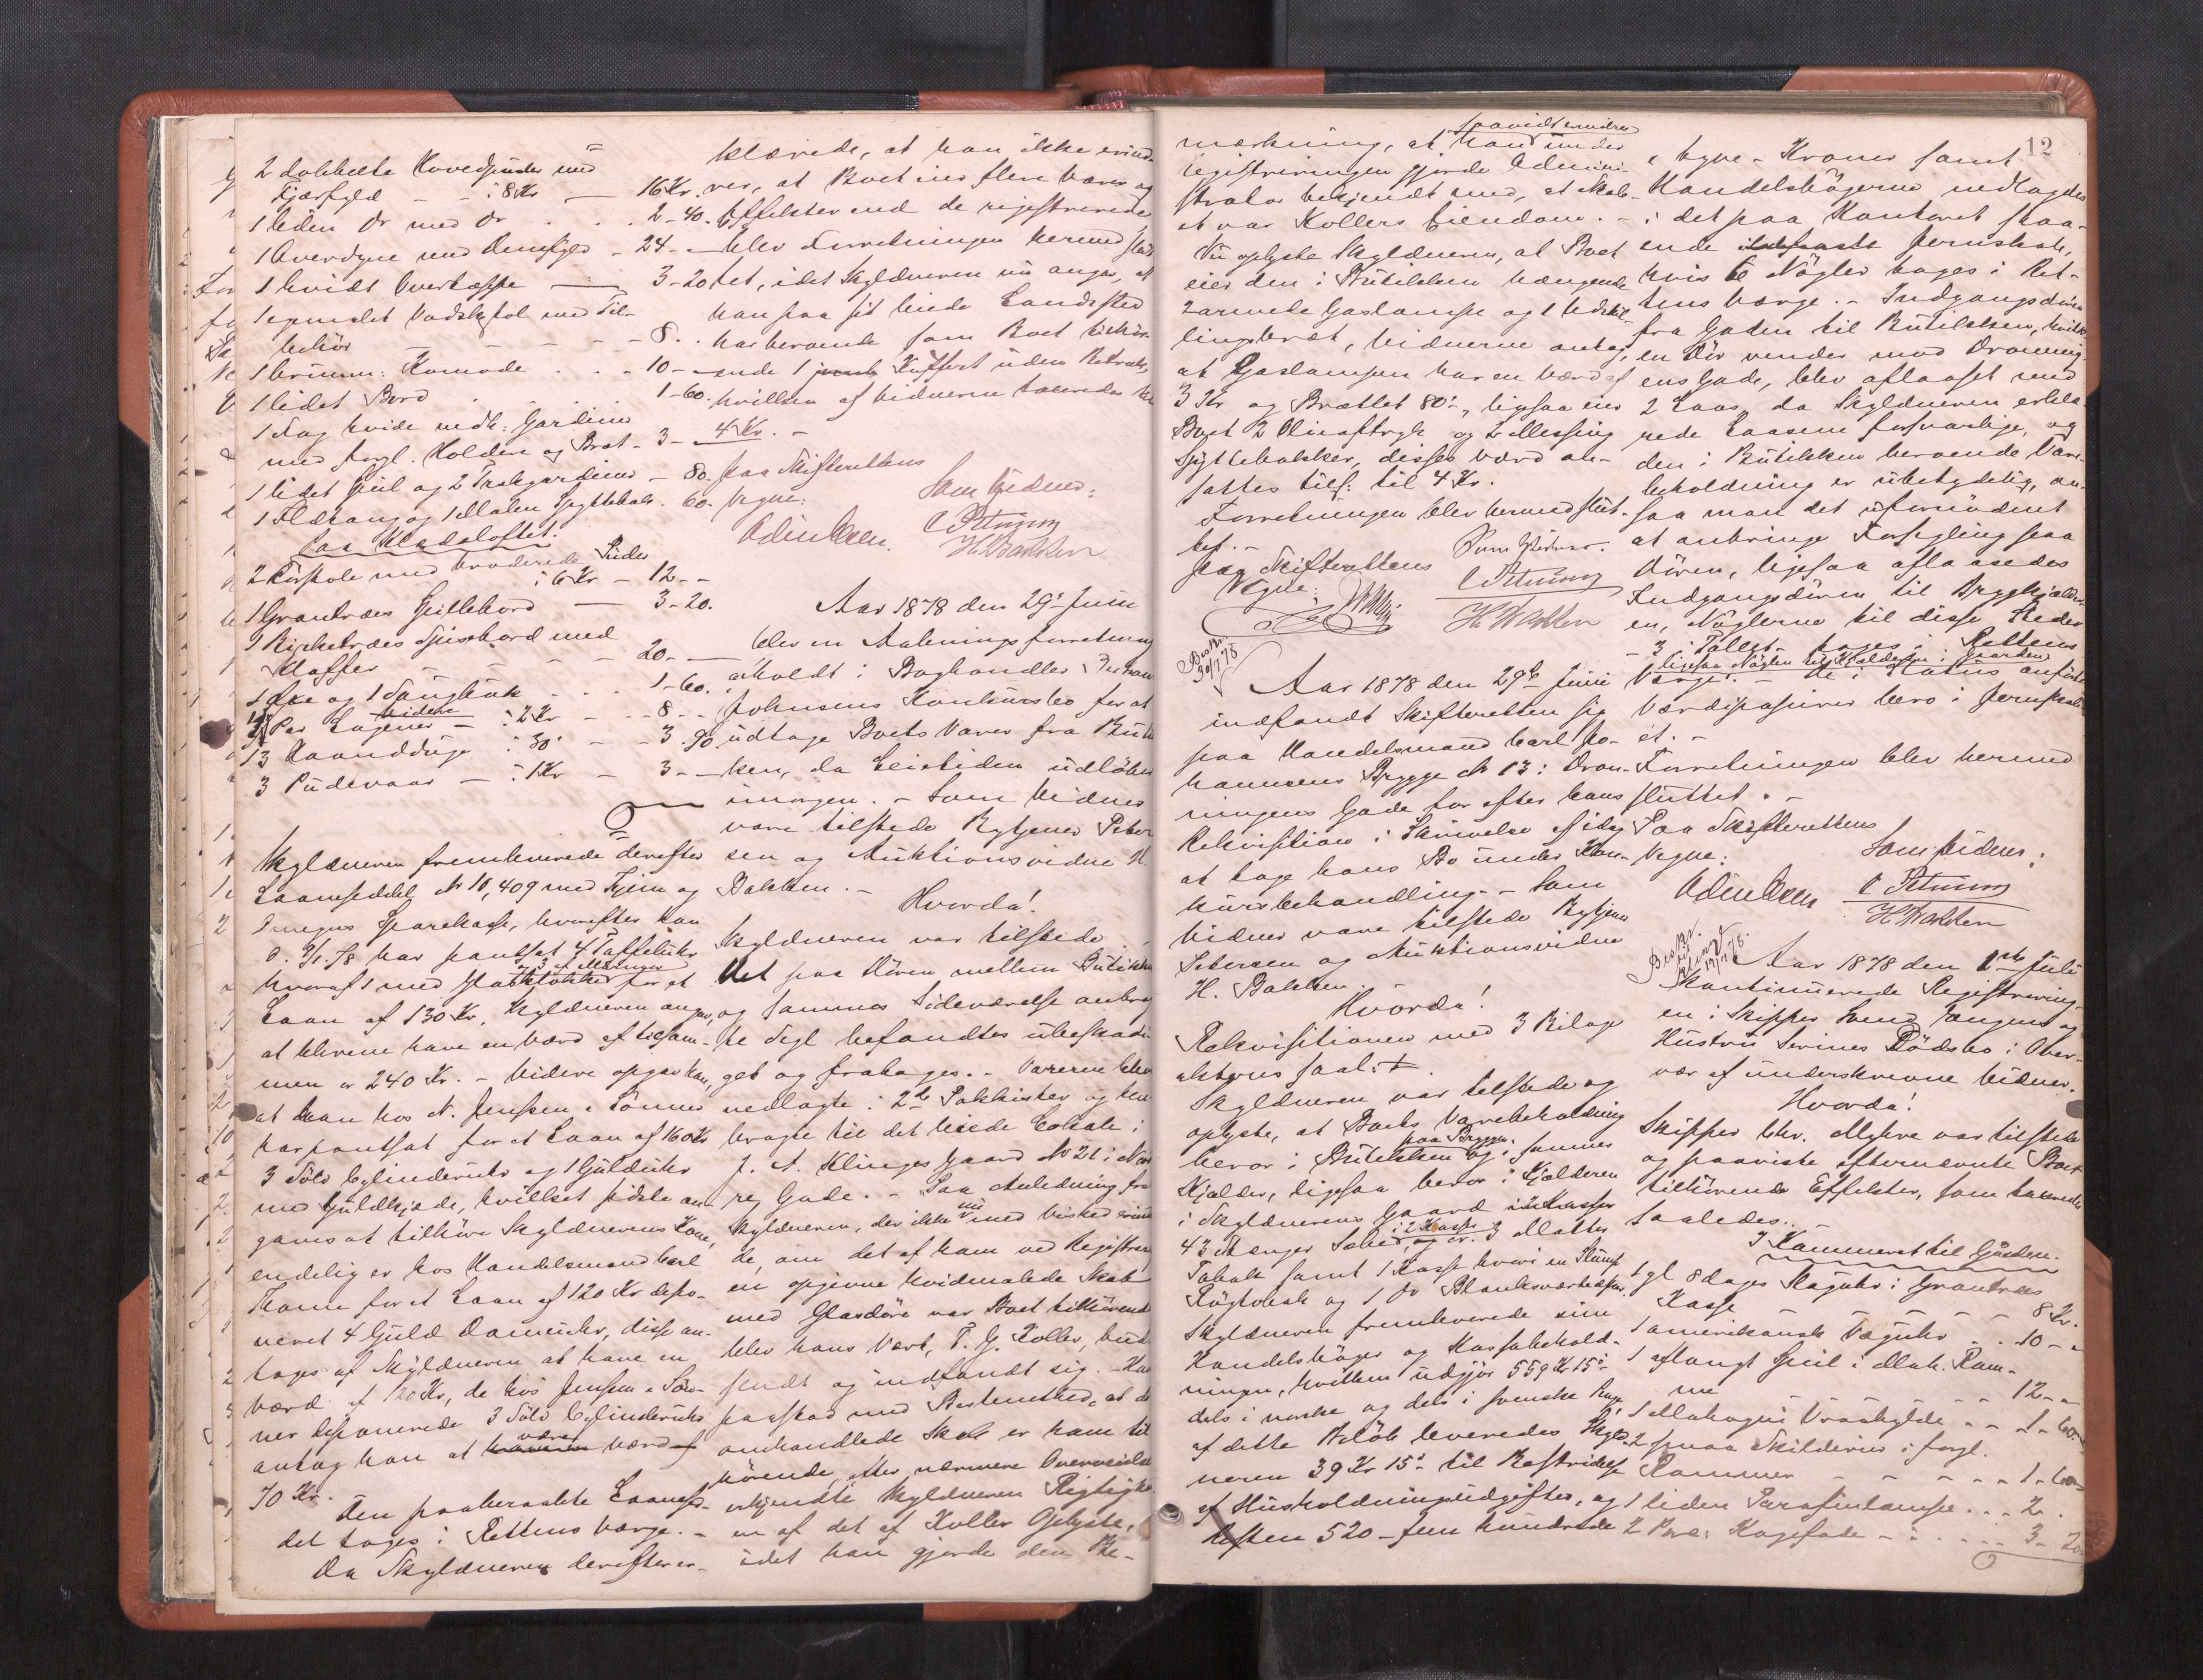 2 dobbelte Hovedpuder med
Fjærfyld - - : 8 Kr — 16 Kr.
1 liden Dr med Dr . . . 2-40.
1 Overdyne med Dunfyld - 24. -
1 hvidt Overtæppe — 3-20
1 egemalet Vadskestol med Til-
behör - - - - - 8. .
1 brunm: Komode . . . 10- -
1 lidet Bord . . . 1-60.
1 Fag hvide medk: Gardiner
med forgl. Holdere og Bræt - 3- -
1 lidet Speil og 2 Trækgardiner - 80.
1 og 1 Malen Spyttebak . 60.
Paa Klædeloftet:
2 Lænstole med broderede Puder
: 6 Kr - 12 - -
1 Grantræes Spillebord — 3-20.
1 Birketræes Spisebord med
Klaffer - - - - - 20. -
1 Øxe og 1 Saugbuk - . . 1-60.
4 Par Lagener videre - : 2 Kr - - 8. -
13 Haandduge : 30 - - 3.90
3 Pudevaar - : 1 Kr - 3- -
Skyldneren fremleverede derefter
Laaneseddel № 10,409 med Hjem og
Omegns Sparekasse, hvorefter han
d. 3/1.78 har pantsat 4 Taffeluhr
hvoraf 1 med Glasklokke og 3 af Messing for et
Laan af 130 Kr. Skyldneren angav,
at Uhrene have en Værd af tilsam-
men c 240 Kr. - Videre opgav han,
at han hos N. Jenssen & Sönner
har pantsat for et Laan af 160 Kr
3 Sölv Cylinderuhr og 1 Guldcuhr
med Guldkjæde, hvilket sidste an-
gaves at tilhöre Skyldnerens Kone,
endelig er hos Handelsmand Carl
Thonn for et Laan af 120 Kr depo-
neret 4 Guld Dameuhr, disse an-
tages af Skyldneren at have en
Værd af 120 Kr, de hos Jenssen & Sön-
ner deponerede 3 Sölv Cylinderuhr
antog han at være værd
70 Kr.
Den paaberaabte Laanesed-
del tages i Rettens Værge. -
Da Skyldneren derefter er-
klærede, at han ikke erind-
rer, at Boet eier flere Varer og
Effekter end de registrerede
blev Forretningen hermed slut-
tet, idet Skyldneren nu angav, at
han paa sit leiede Landsted
har beroende som Boet tilhör-
ende 1 Kuffert uden Betræk,
hvilken af Vidnerne taxeredes til
4 Kr. -
Paa Skifterettens
Vegne: Som Vidner:
Odin Olsen. O Petersen
H. Bakken
Aar 1878 den 29de Juni
blev en Aabningsforretning
afholdt i Boghandler Johan
Johnsens Konkursbo for at
udtage Boets Varer fra Butik-
ken, da Leietiden udlöber
imorgen. - Som Vidner
vare tilstede Bytjener Peter-
sen og Auktionsvidne H.
Bakken. -
Hvorda!
Skyldneren var tilstede. -
Det paa Dören mellem Butikken
og sammes Sideværelse anbrag-
te Segl befandtes ubeskadi-
get og fratages. - Varerne blev
nedlagte i 2de Pakkister og hen-
bragte til det leiede Lokale i
J. A. Klinges Gaard № 21 i Nor-
re Gade. - Paa Anledning fra
Skyldneren, der ikke nu med Vished erind-
rede, om det af ham ved Registrering-
en opgivne hvidmalede Skab
med Glasdöre var Boet tilhörende
blev hans Vært, T. G. Koller, bud-
sendt og indfandt sig. - Han
paastod med Bestemthed, at det
omhandlede Skab er ham til-
hörende, efter nærmere Overveielse
erkjendte Skyldneren Rigtighed-
en af det af Koller Oplyste,
idet han gjorde den Be-
12
mærkning, at han saavidt erindres under
Registreringen gjorde Admini-
strator bekjendt med, at Skab-
et var Kollers Eiendom. -
Nu oplyste Skyldneren, at Boet
eier den i Butikken hængende
2 armede Gaslampe og 1 Udstil-
lingsbræt, Vidnerne antog,
at Gaslampen har en Værd af
3 Kr og Brættet 80 -, ligesaa eier
Boet 2 Olieaftryk og 2 Messing
Spyttebakker, disses Værd an-
sattes tils: til 4 Kr.
Forretningen blev hermed slut-
tet. -
Paa Skifterettens Som Vidner.
Vegne: O Petersen
H. Bakken
Beskr.
30/7 78
Aar 1878 den 29de Juni
indfandt Skifteretten sig
paa Handelsmand Carl Jo-
hannsens Brygge № 13 i Dron-
ningens Gade for efter hans
Rekvisition i Skrivelse af idag
at tage hans Bo under Kon-
kursbehandling. - Som
Vidner vare tilstede Bytjener
Petersen og Auktionsvidne
H. Bakken. -
Hvorda!
Rekvisitionen med 3 Bilage
akteres saal: †.
Skyldneren var tilstede og
oplyste, at Boets Varebeholdning
beror i Butikken paa Bryggen og i sammes
Kjelder, ligesaa beror i Kjælderen
i Skyldnerens Gaard
43 Stænger Sæbe i 2 Kasser, og cr. 3 Matter
Tobak samt 1 Kasse hvori en Slump
Rögtobak og 1 Dr Blanksværteæsker.
Skyldneren fremleverede sine
Handelsböger og Kassebehold-
ningen, hvilken udgjör 559 Kr 15 -
dels i norske og dels i svenske Penge
af dette Belöb leveredes Skyld-
neren 39 Kr 15 - til Bestridelse
af Husholdningsudgifter, og
Resten 520 - fem hundrede
& tyve - Kroner samt
Handelsbögerne nedlagdes
i det paa Kontoret staa-
ende ildfaste Jernskab,
hvis 6 Nögler tages i Ret-
tens Værge. - Indgangsdören
fra Gaden til Butikken, hvilk-
en Dör vender mod Dronning-
ens Gade, blev aflaaset med
2 Laas, da Skyldneren erklæ-
rede Laasene forsvarlige, og
den i Butikken beroende Vare-
beholdning er ubetydelig, an-
saa man det ufornödent
at anbringe Forsegling paa
Dören, ligesaa aflaasedes
Indgangsdören til Bryggekjælder-
en, Nöglerne til disse Steder
- 3 i Tallet - tages i Rettens
Værge. ligesaa Nöglen til Kjælderen i Gaarden - De i Status anförte
Værdipapirer bero i Jernskab-
et. -
Forretningen blev hermed
sluttet. -
Paa Skifterettens
Vegne: Som Vidner:
Odin Olsen O Petersen
H. Bakken
Beskr.
til
Klinge
13/7 78.
Aar 1878 den 1ste Juli
kontinueredes Registrering-
en i Skipper Svend Tangens og
Hustru Serines Dödsbo i Over-
vær af underskrevne Vidner.
Hvorda!
Skipper Chr. Myhre var tilstede
og paaviste efternævnte Boet
tilhörende Effekter, som taxeredes
saaledes. -
I Kammeret til Gaarden.
1 gl 8 dages Slaguhr i Grantræes
Kasse - - - - - 8 Kr.
1 amerikansk Væguhr . . 10 - -
1 aflangt Speil i Mah. Ram-
me - - - - 12 - -
1 Mahogni Vraahylde - - 1-60
2 smaa Skilderier i forgl.
Rammer - - - - - 1-60
1 liden Parafinlampe . . . 2 .
2 Kagefade - . . . . . 3-20